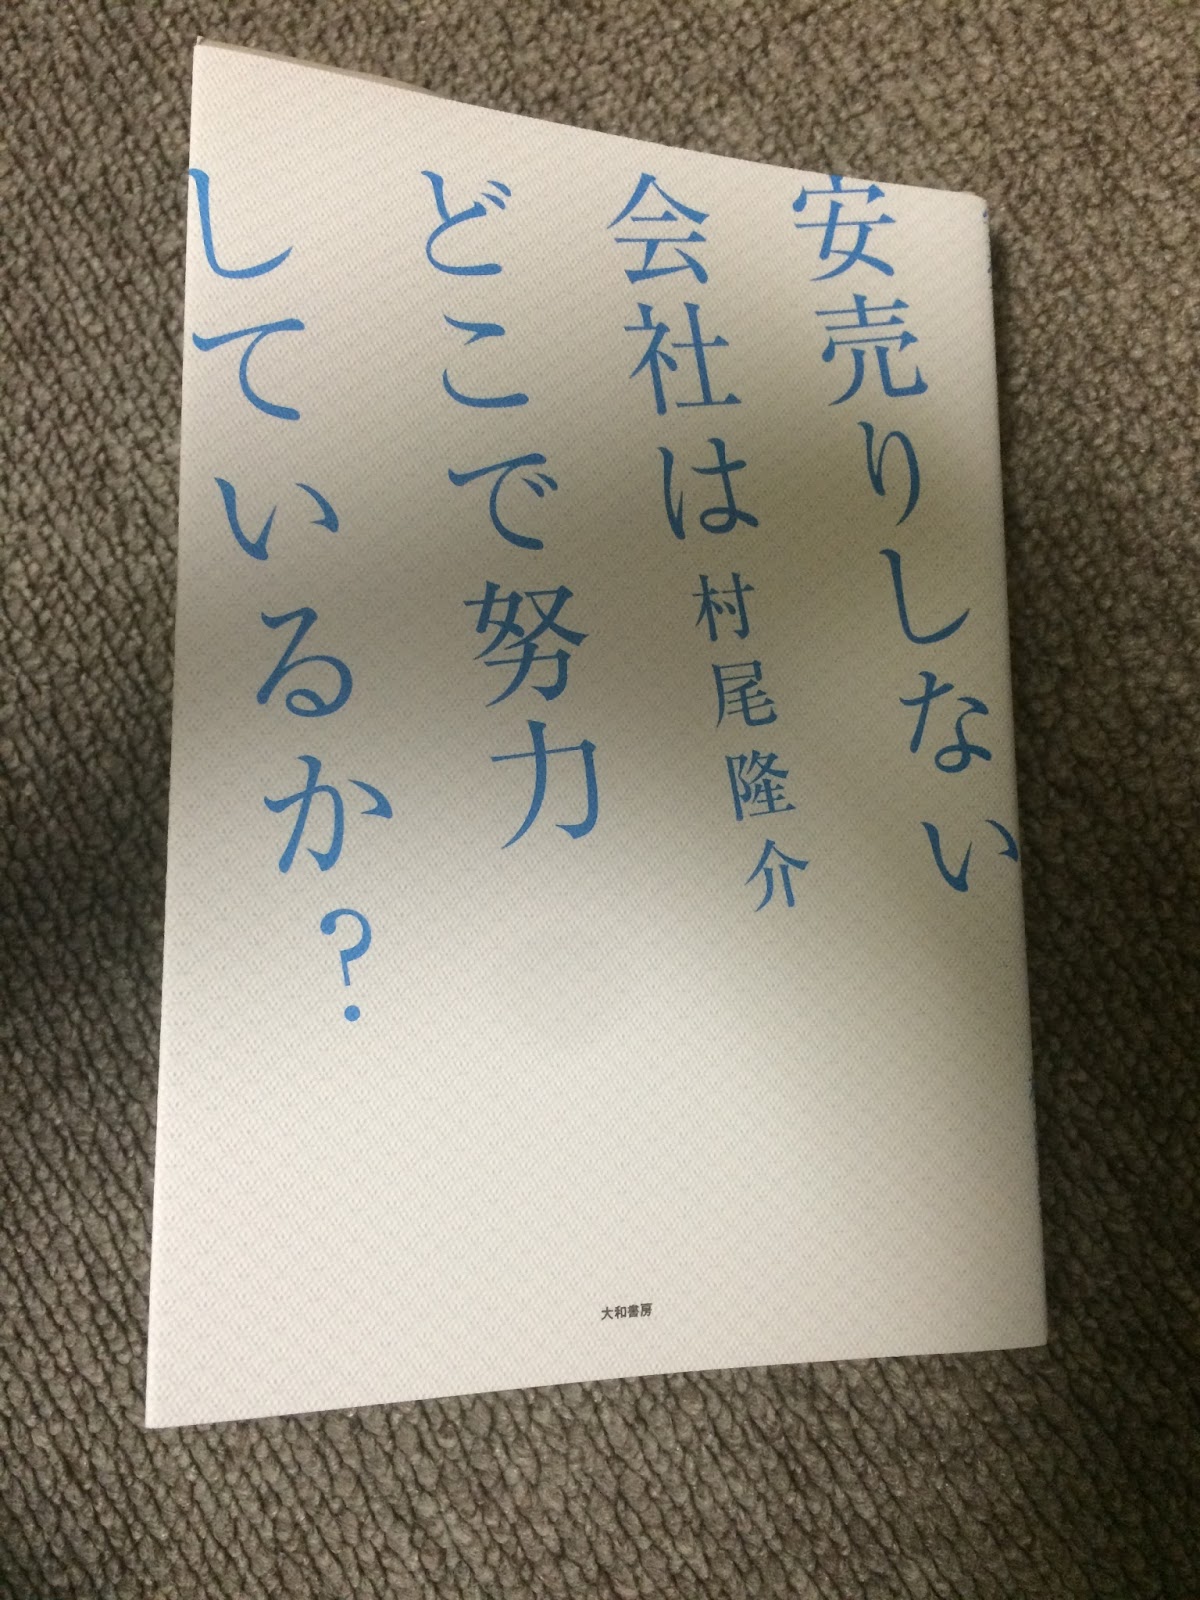 安売りしない
会社は
村尾隆介
どこで努力
しているか?
大和書房